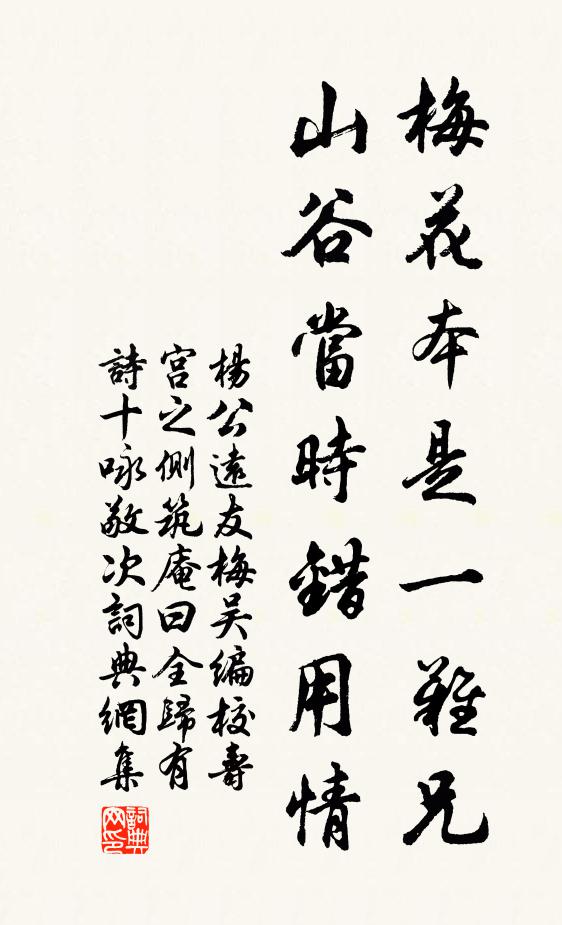 梅花本是一難兄
山谷當時錯用情
楊公遠友梅吴編校壽
宫之側筑庵曰全歸有
詩十咏敬次詞典網集
詞典
网印